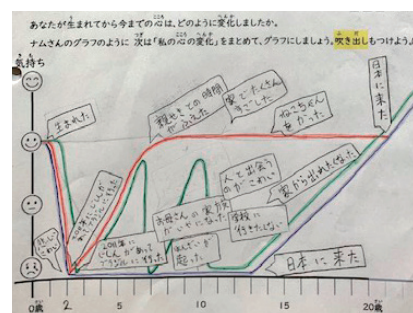 あなたが生まれてから今までの心は、どのように変化しましたか。
ナムさんのグラフのように 次は「私の心の変化」をまとめて、グラフにしましょう。吹き出しもつけよう。
気持ち
生まれた
親せきとの時間がふえた
家でたくさんすごした
ねこちゃんをかった
日本に来た
人と出会うのがこわい
家から出れなくなった
お母さんの家族がいやになった
学校に行きたくない
2011年にじしんがあってブラジルに行った
2011年にじしんがあってブラジルに行った
はんざいが起った
日本に来た
0歳
2
5
10
15
20歳